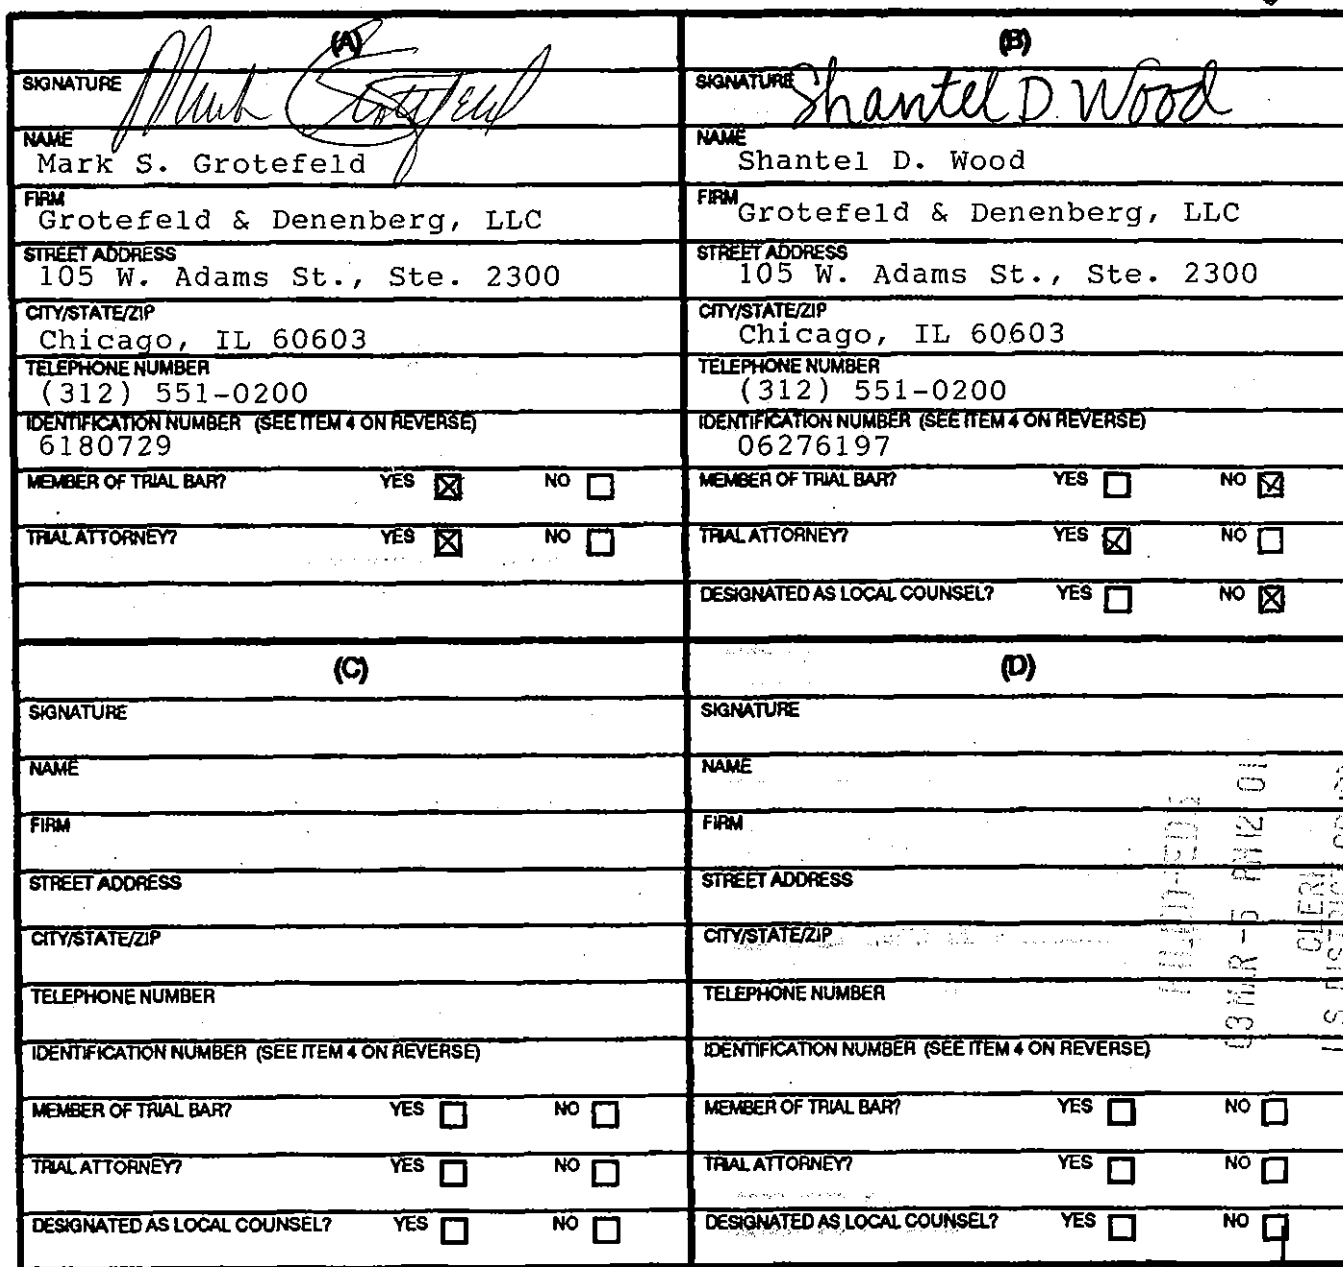 (A)
SIGNATURE Mark Grotefeld
NAME
Mark S. Grotefeld
FIRM
Grotefeld & Denenberg, LLC
STREET ADDRESS
105 W. Adams St., Ste. 2300
CITY/STATE/ZIP
Chicago, IL 60603
TELEPHONE NUMBER
(312) 551-0200
IDENTIFICATION NUMBER (SEE ITEM 4 ON REVERSE)
6180729
MEMBER OF TRIAL BAR? YES ☒ NO ☐
TRIAL ATTORNEY? YES ☒ NO ☐
(B)
SIGNATURE Shantel D. Wood
NAME
Shantel D. Wood
FIRM
Grotefeld & Denenberg, LLC
STREET ADDRESS
105 W. Adams St., Ste. 2300
CITY/STATE/ZIP
Chicago, IL 60603
TELEPHONE NUMBER
(312) 551-0200
IDENTIFICATION NUMBER (SEE ITEM 4 ON REVERSE)
06276197
MEMBER OF TRIAL BAR? YES ☐ NO ☑
TRIAL ATTORNEY? YES ☑ NO ☐
DESIGNATED AS LOCAL COUNSEL? YES ☐ NO ☒
(C)
SIGNATURE
NAME
FIRM
STREET ADDRESS
CITY/STATE/ZIP
TELEPHONE NUMBER
IDENTIFICATION NUMBER (SEE ITEM 4 ON REVERSE)
MEMBER OF TRIAL BAR? YES ☐ NO ☐
TRIAL ATTORNEY? YES ☐ NO ☐
DESIGNATED AS LOCAL COUNSEL? YES ☐ NO ☐
(D)
SIGNATURE
NAME
FIRM
STREET ADDRESS
CITY/STATE/ZIP
TELEPHONE NUMBER
IDENTIFICATION NUMBER (SEE ITEM 4 ON REVERSE)
MEMBER OF TRIAL BAR? YES ☐ NO ☐
TRIAL ATTORNEY? YES ☐ NO ☐
DESIGNATED AS LOCAL COUNSEL? YES ☐ NO ☐
03 MAR -5 PM 12: 01
CLERK